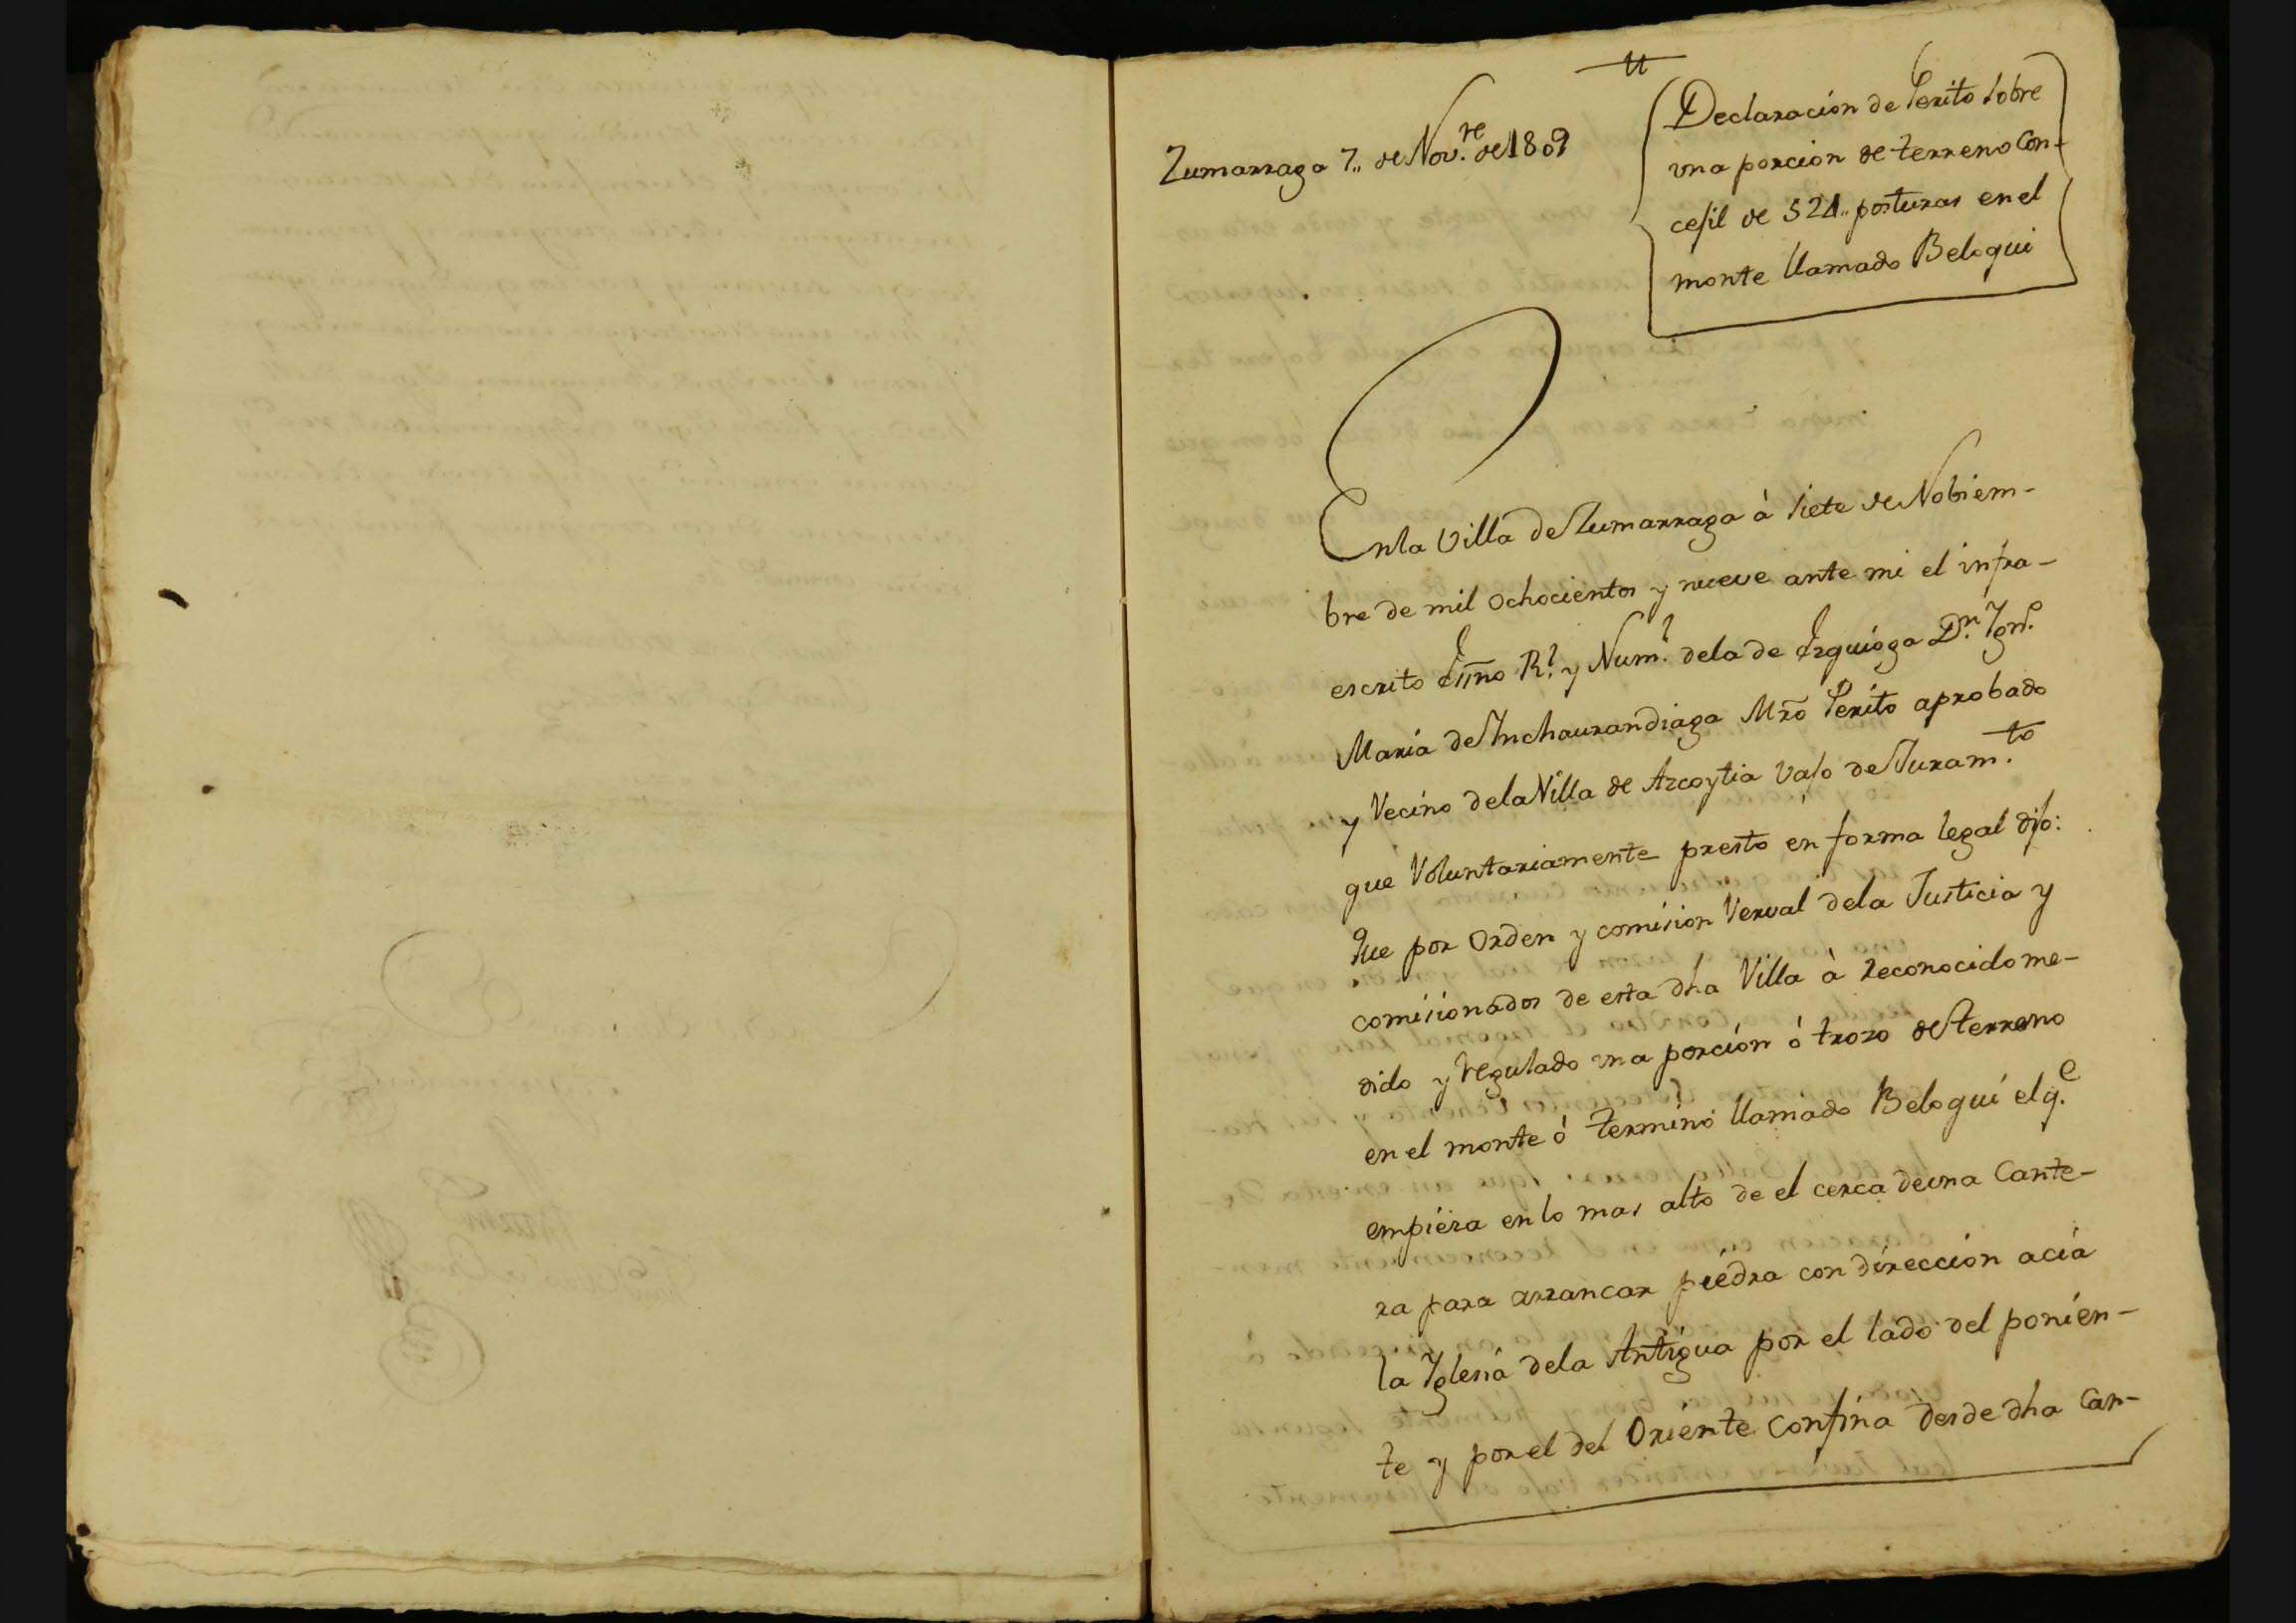 Zumarraga 7,, de Nov.re de 1809
Declaracion de Perito sobre
una porcion de terreno Con-
cejil de 524,, posturas en el
monte llamado Belogui
En la Villa de Zumarraga à siete de Nobiem-
bre de mil ochocientos y nueve ante mi el infra-
escrito Essno Rl. y Num.l dela de Ezquioga Dn. Ign.o
Maria de Inchaurandiaga Mro Perito aprobado
y Vecino dela Villa de Azcoytia vajo de Juram.to
que Voluntariamente presto en forma legal dijo:
Que por orden y comision Verval dela Justicia y
comisionados de esta dha Villa à reconocido me-
dido y regulado una porción ó trozo de terreno
en el monte ó termino llamado Belogui el q.e
empieza en lo mas alto de el cerca de una Cante-
ra para arrancar piedra con dirección acia
la Yglesia dela Antigua por el lado del ponien-
te y por el del Oriente Confina desde dha Can-